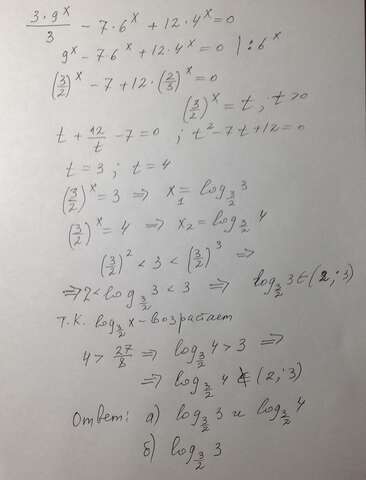 3·9^x/3 − 7·6^x + 12·4^x = 0
9^x − 7·6^x + 12·4^x = 0 | : 6^x
(3/2)^x − 7 + 12·(2/3)^x = 0
(3/2)^x = t, t>0
t + 12/t − 7 = 0 ; t² − 7t + 12 = 0
t = 3 ; t = 4
(3/2)^x = 3 ⇒ x₁ = log_{3/2} 3
(3/2)^x = 4 ⇒ x₂ = log_{3/2} 4
(3/2)² < 3 < (3/2)³ ⇒
⇒ 2 < log_{3/2} 3 < 3 ⇒ log_{3/2} 3 ∈ (2; 3)
т.к. log_{3/2} x - возрастает
4 > 27/8 ⇒ log_{3/2} 4 > 3 ⇒
⇒ log_{3/2} 4 ∉ (2; 3)
Ответ: а) log_{3/2} 3 и log_{3/2} 4
б) log_{3/2} 3